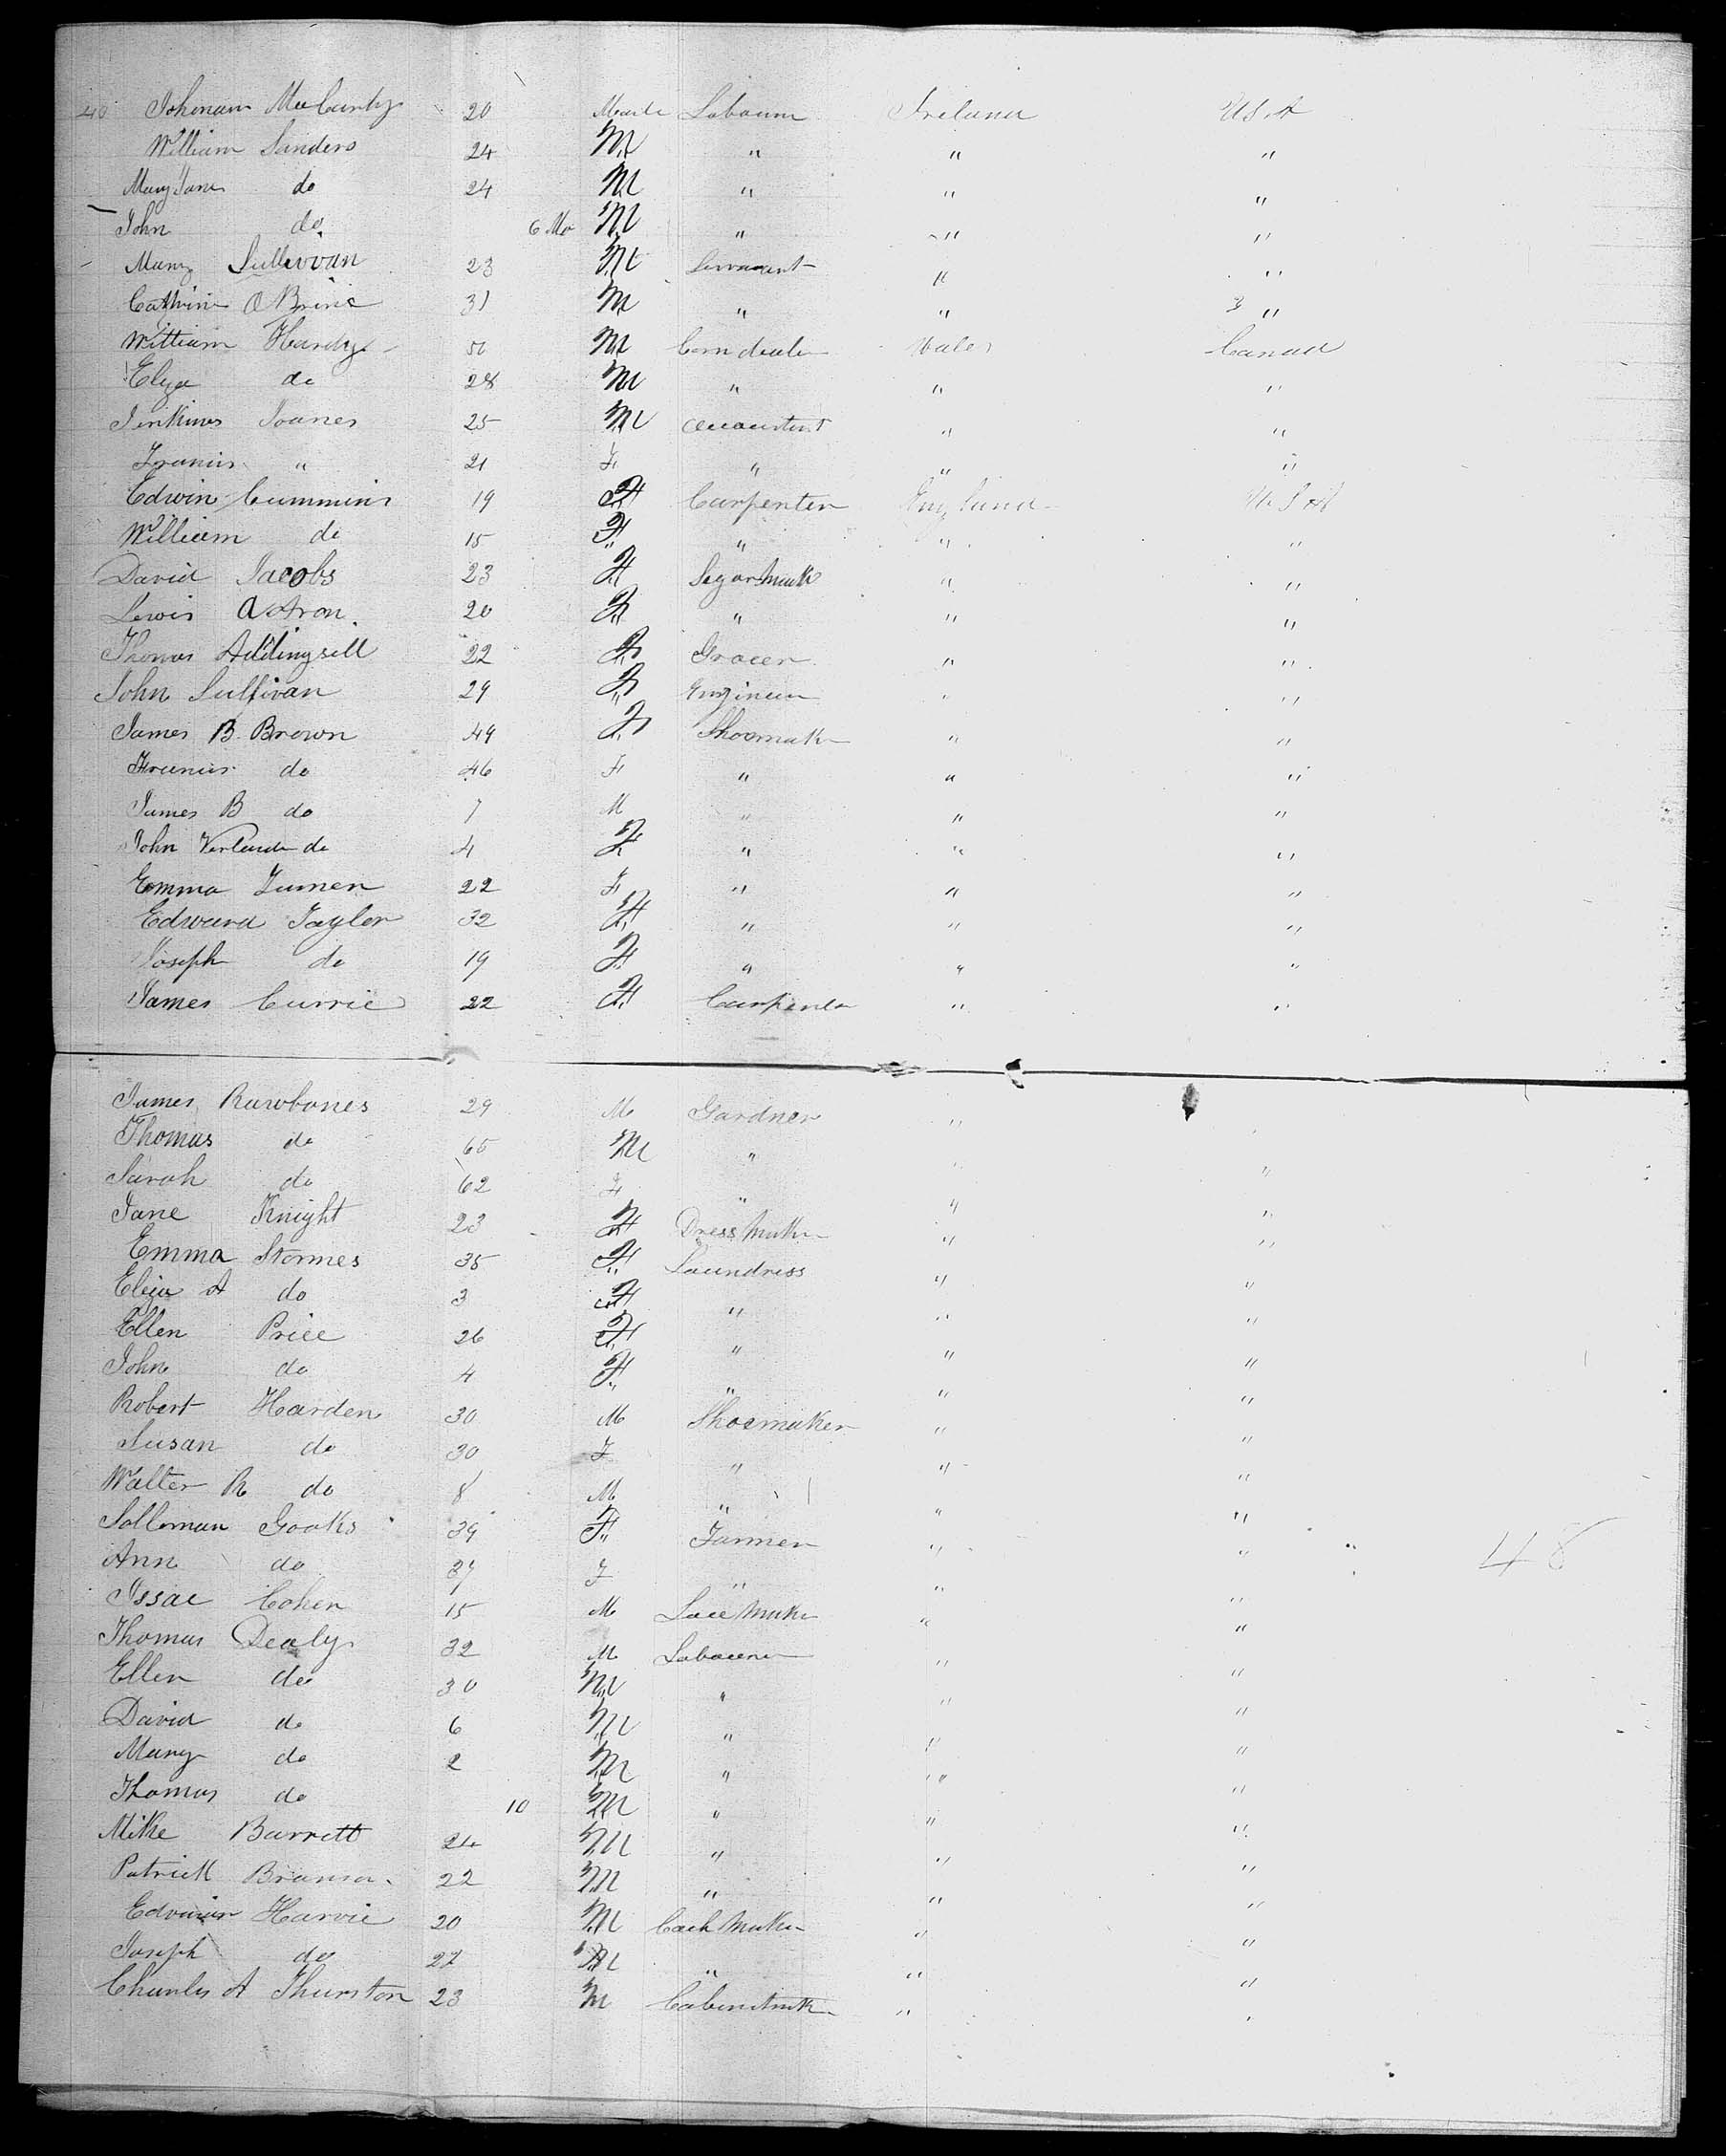 40 Johnaum McCarty 20 Male Labourer Ireland USA
William Sanders 24 M " " "
Mary Jane do 24 M " " "
John do 6 Mo M " " "
Mary Sullivvan 23 M Servant " "
Cathrine O Brine 31 M " " "
William Hardy M Corn dealer Wales Canad
Eliza do 28 M " " "
Jenkines Joanes 25 M " "
Francis " 21 F " " "
Edwin Cummins 19 F Carpenter England U S A
William do 15 F " " "
David Jacobs 23 F Segar Make " "
Lewis Aatron 20 F " " "
Thomas Addingsell 22 F Grocer " "
John Sullivan 29 F Engineer " "
James B. Brown 49 F Shoemaker " "
Francis do 46 F " " "
James B do 7 M " " "
John do 4 F " " "
Emma Turner 22 F " " "
Edward Taylor 32 F " " "
Joseph do 19 F " " "
James Currie 22 F Carpenter " "
James Rawbones 29 M Gardner "
Thomas do 65 M " " "
Sarah do 62 F " " "
Jane Knight 23 F Dress Maker " "
Emma Stormes 35 F Laundress " "
Eliza A do 3 F " " "
Ellen Price 26 F " " "
John do 4 F " " "
Robert Harden 30 M Shoemaker " "
Susan do 30 F " " "
Walter R do 8 M " " "
Solloman Gooks 39 F Farmer " " 48
Ann do 37 F " " "
Issac Cohen 15 M Lace Maker " "
Thomas Dealy 32 M Labourer " "
Ellen do 30 M " " "
David do 6 M " " "
Mary do 2 M " " "
Thomas do 10 M " " "
Mike Barrett 24 M " " "
Patrick 22 M " " "
Edwin Harvie 20 M Coch Maker " "
Joseph do 27 M " " "
Charles A Thurston 23 M Cabinetmaker " "